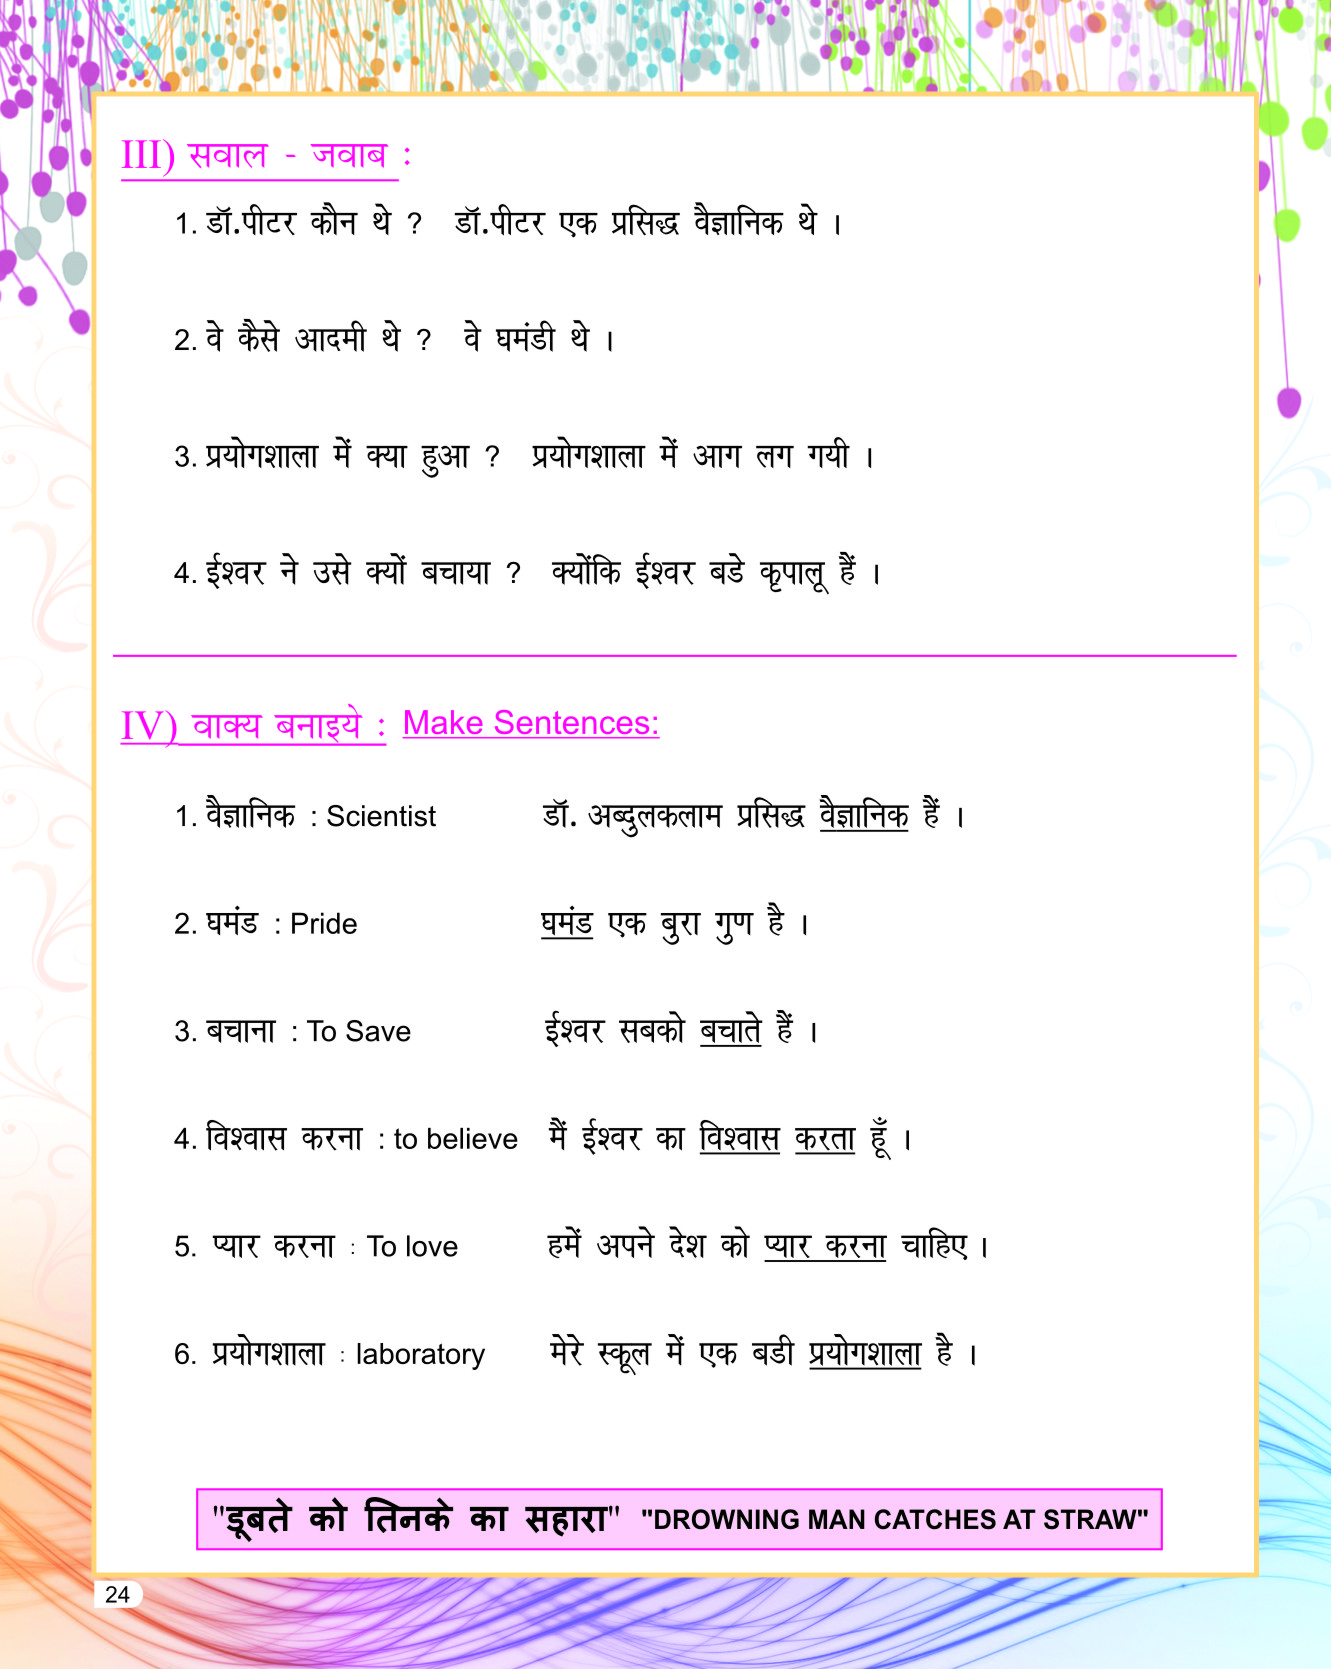 III) सवाल - जवाब :
1. डॉ.पीटर कौन थे ? डॉ.पीटर एक प्रसिद्ध वैज्ञानिक थे ।
2. वे कैसे आदमी थे ? वे घमंडी थे ।
3. प्रयोगशाला में क्या हुआ ? प्रयोगशाला में आग लग गयी ।
4. ईश्वर ने उसे क्यों बचाया ? क्योंकि ईश्वर बडे कृपालू हैं ।
IV) वाक्य बनाइये : Make Sentences:
1. वैज्ञानिक : Scientist डॉ. अब्दुलकलाम प्रसिद्ध वैज्ञानिक हैं ।
2. घमंड : Pride घमंड एक बुरा गुण है ।
3. बचाना : To Save ईश्वर सबको बचाते हैं ।
4. विश्वास करना : to believe मैं ईश्वर का विश्वास करता हूँ ।
5. प्यार करना : To love हमें अपने देश को प्यार करना चाहिए ।
6. प्रयोगशाला : laboratory मेरे स्कूल में एक बडी प्रयोगशाला है ।
"डूबते को तिनके का सहारा" "DROWNING MAN CATCHES AT STRAW"
24